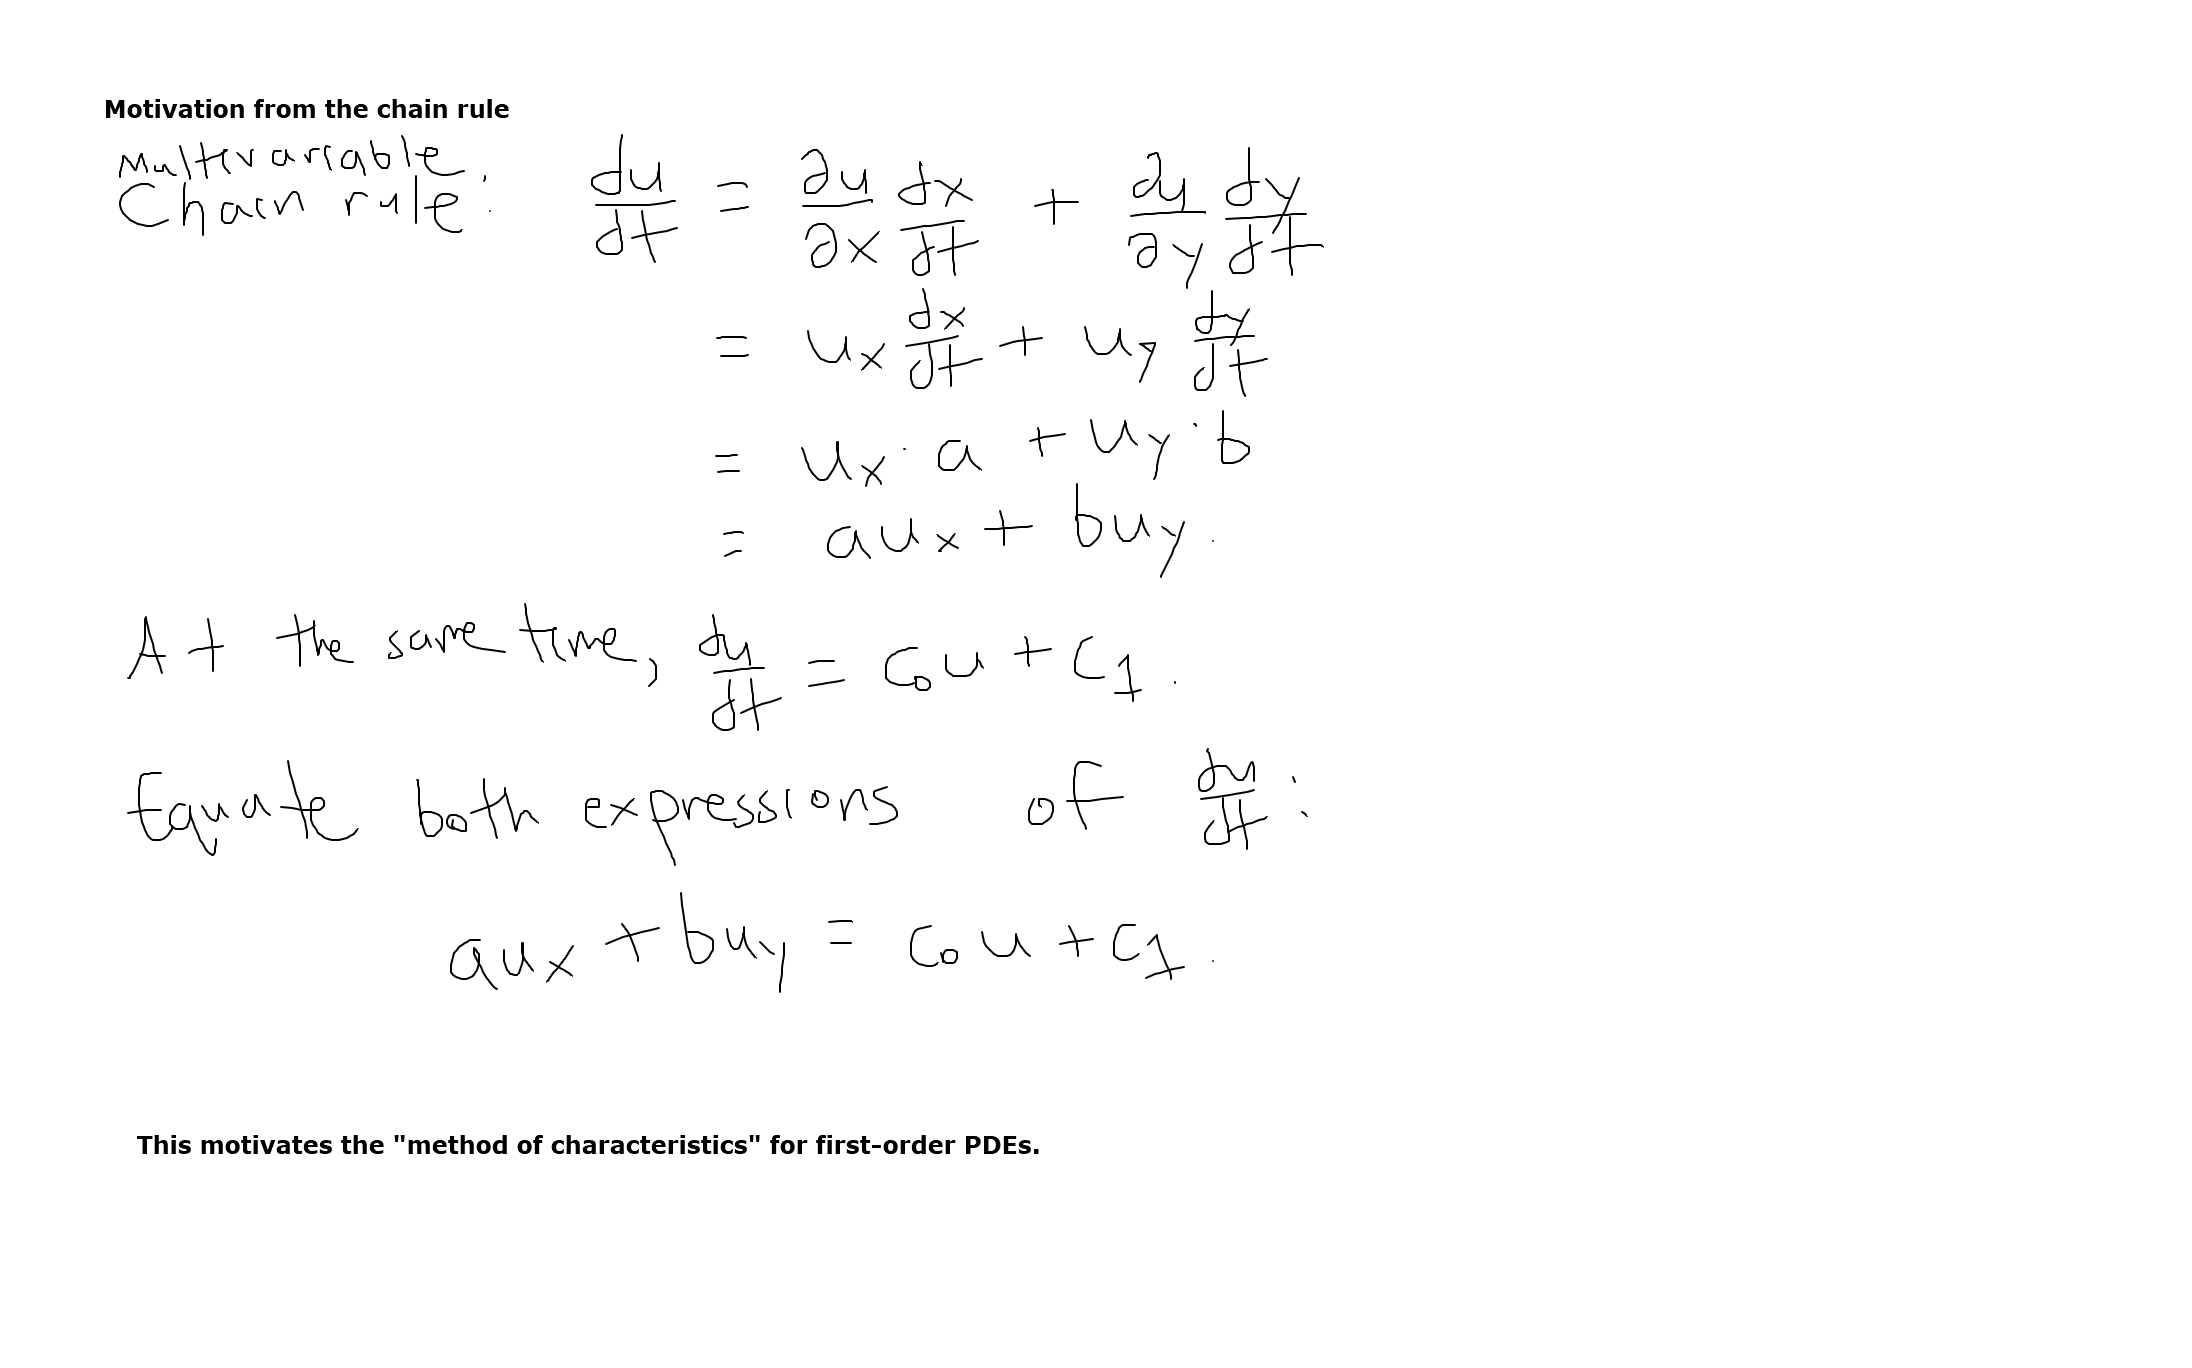 Motivation from the chain rule
Multivariable
Chain rule: du/dt = ∂u/∂x dx/dt + ∂u/∂y dy/dt
= u_x dx/dt + u_y dy/dt
= u_x · a + u_y · b
= au_x + bu_y.
At the same time, du/dt = c_0 u + c_1.
Equate both expressions of du/dt:
au_x + bu_y = c_0 u + c_1.
This motivates the "method of characteristics" for first-order PDEs.